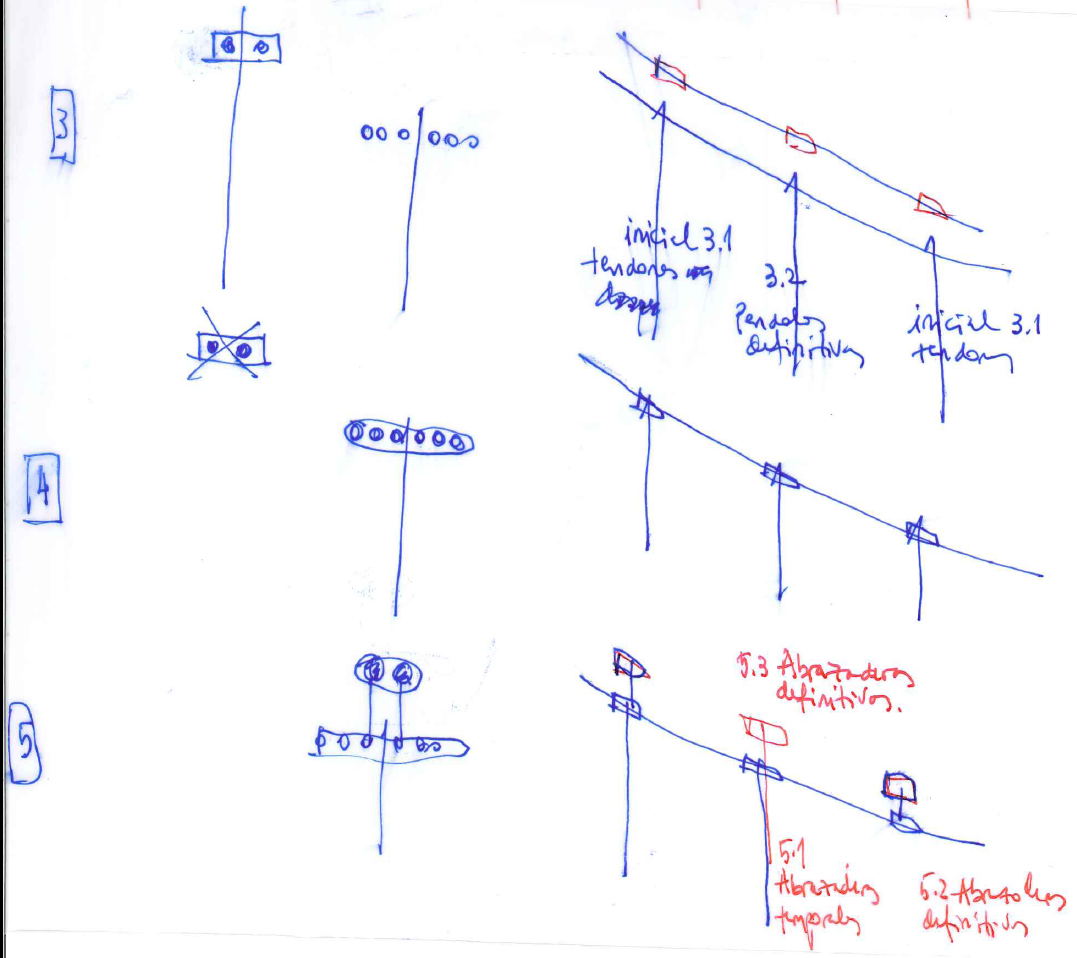 3
inicial 3.1
tendones
3.2
Pendolas
definitivas
inicial 3.1
tendones
4
5
5.3 Abrazaderas
definitivas.
5.1
Abrazaderas
temporales
5.2 Abrazaderas
definitivas